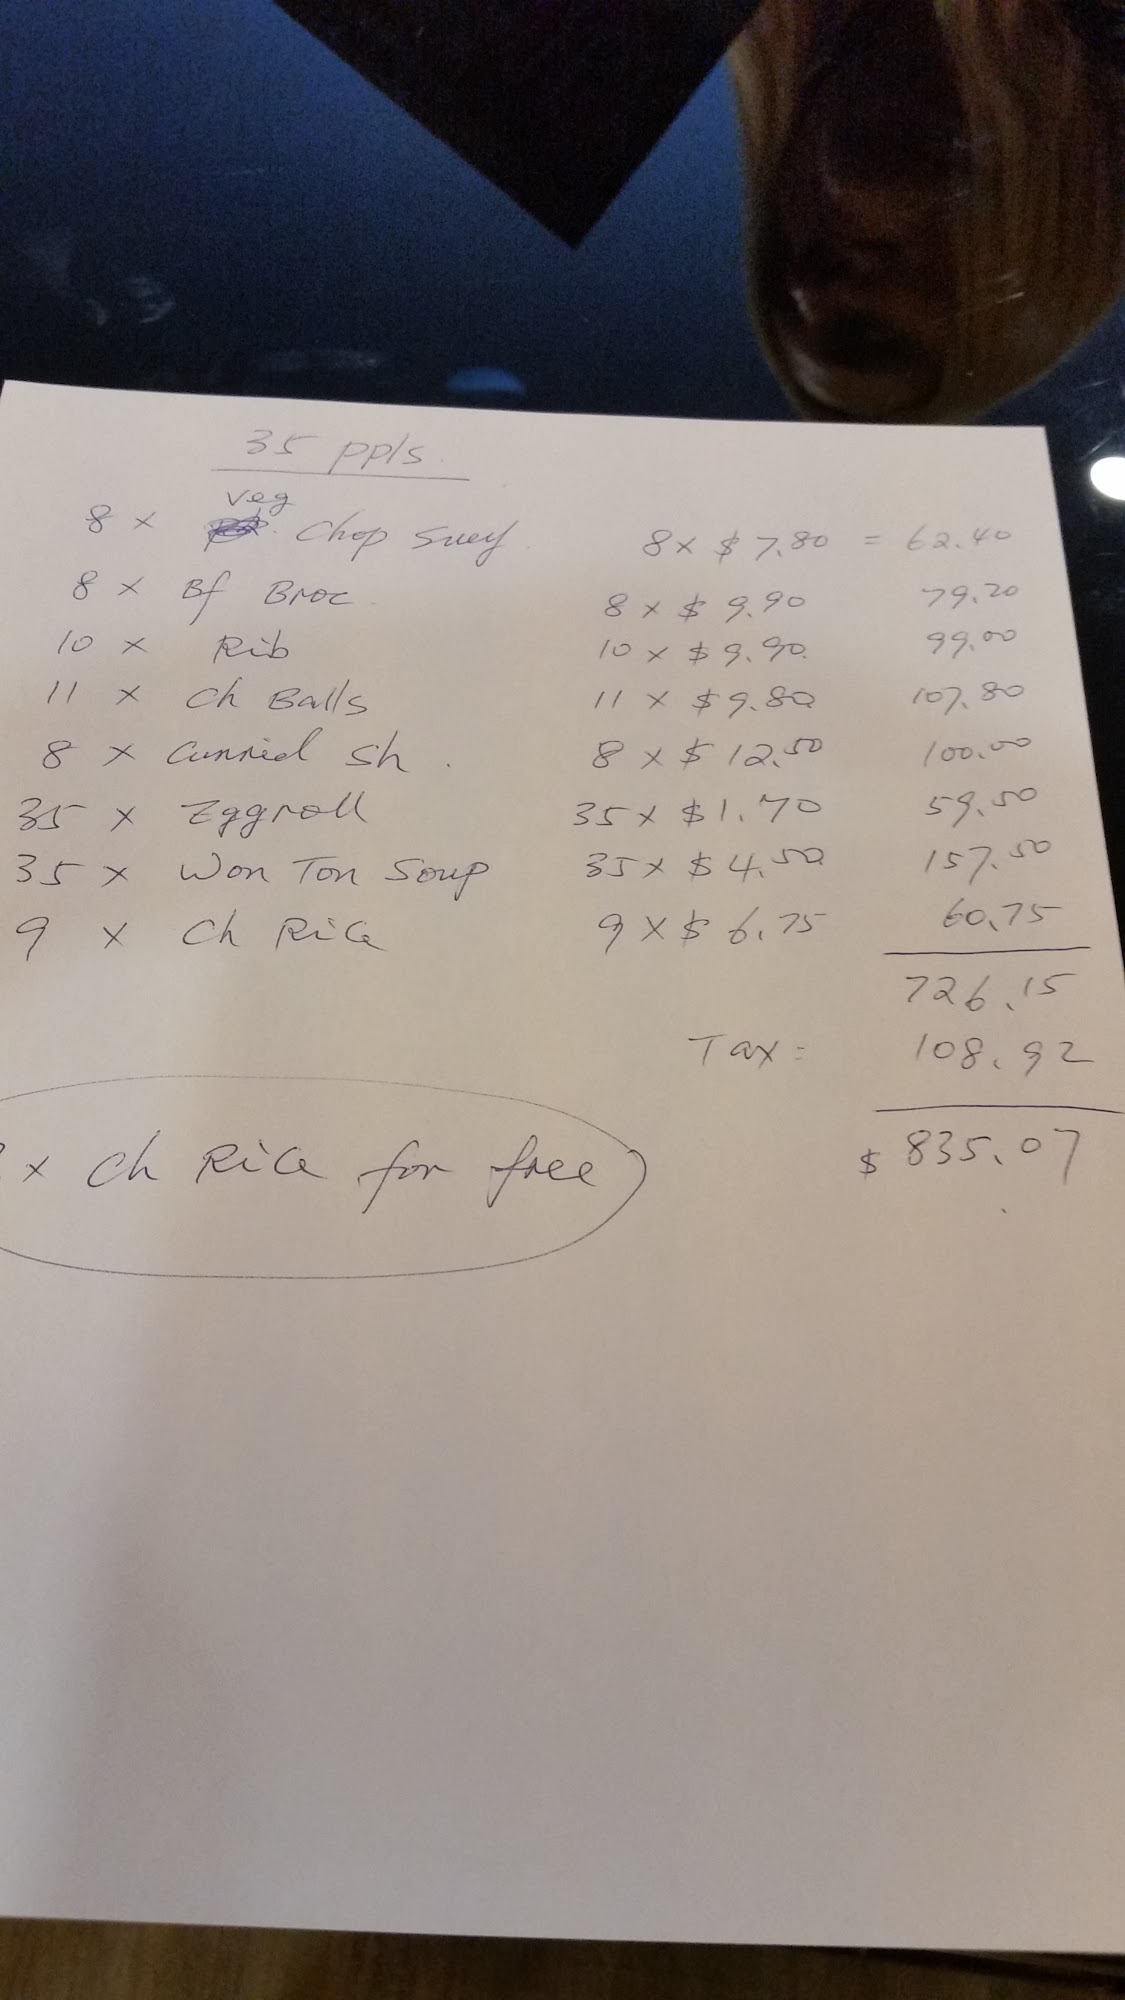 35 ppls.
veg
8 x Chop Suey 8 x $ 7.80 = 62.40
8 x Bf Broc 8 x $ 9.90 79.20
10 x Rib 10 x $ 9.90 99.00
11 x Ch Balls 11 x $ 9.80 107.80
8 x Curried Sh. 8 x $ 12.50 100.00
35 x Eggroll 35 x $ 1.70 59.50
35 x Won Ton Soup 35 x $ 4.50 157.50
9 x Ch Rice 9 x $ 6.75 60.75
726.15
Tax = 108.92
x Ch Rice for free $ 835.07